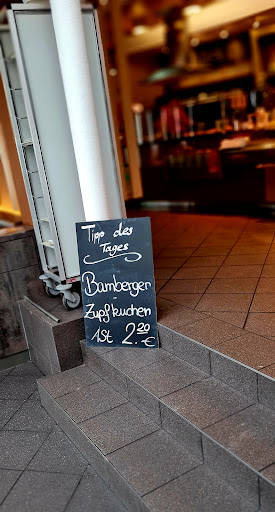 Tipp des
Tages
Bamberger
Zupfkuchen
1St 2.20
€